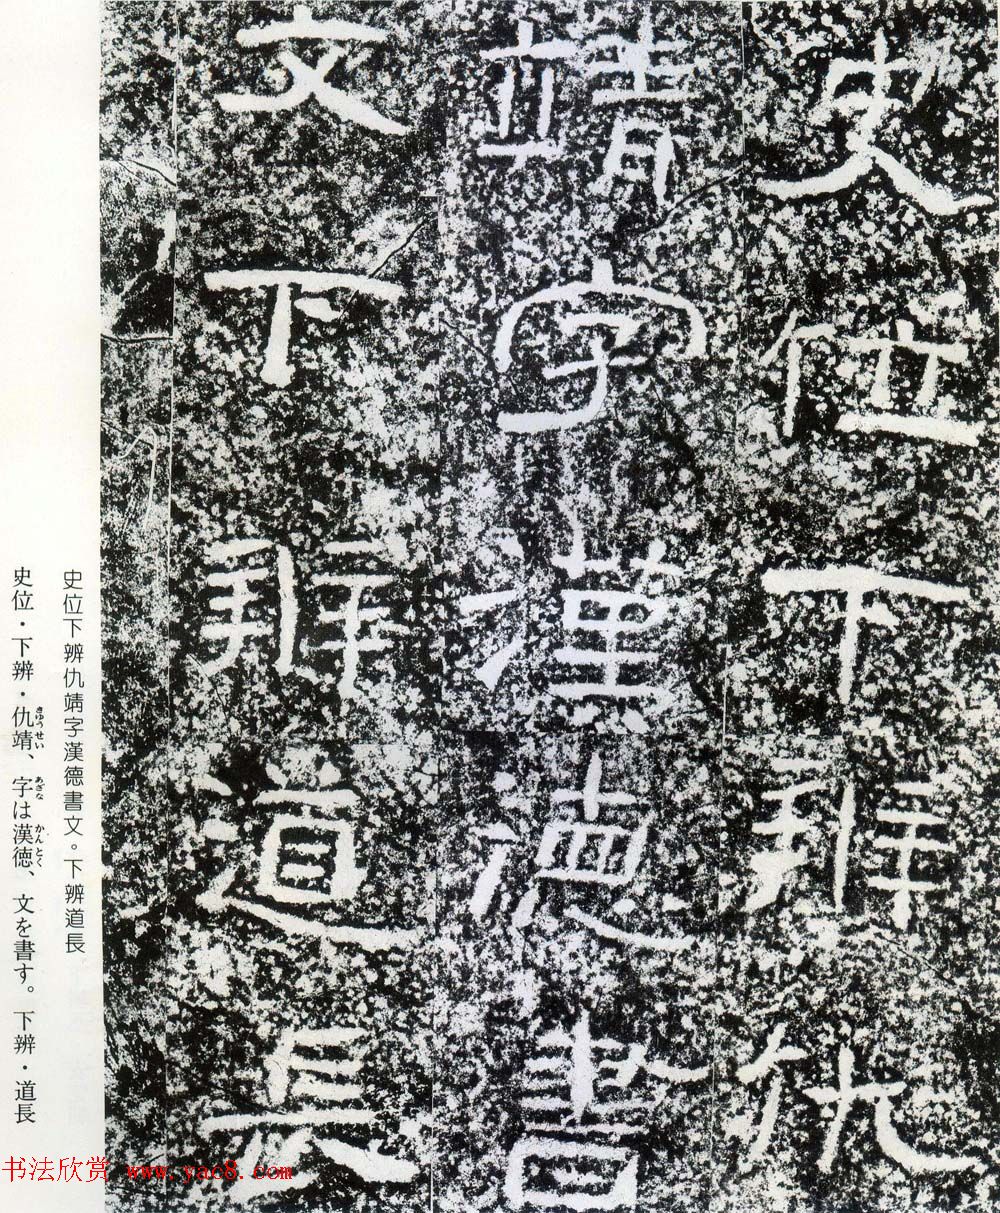 史位下辨仇
靖字漢德書
文下辨道長
史位下辨仇靖字漢德書文。下辨道長
史位・下辨・仇靖、字は漢徳、文を書す。下辨・道長
きゅうせい
あざな
かんとく
书法欣赏 www.yac8.com